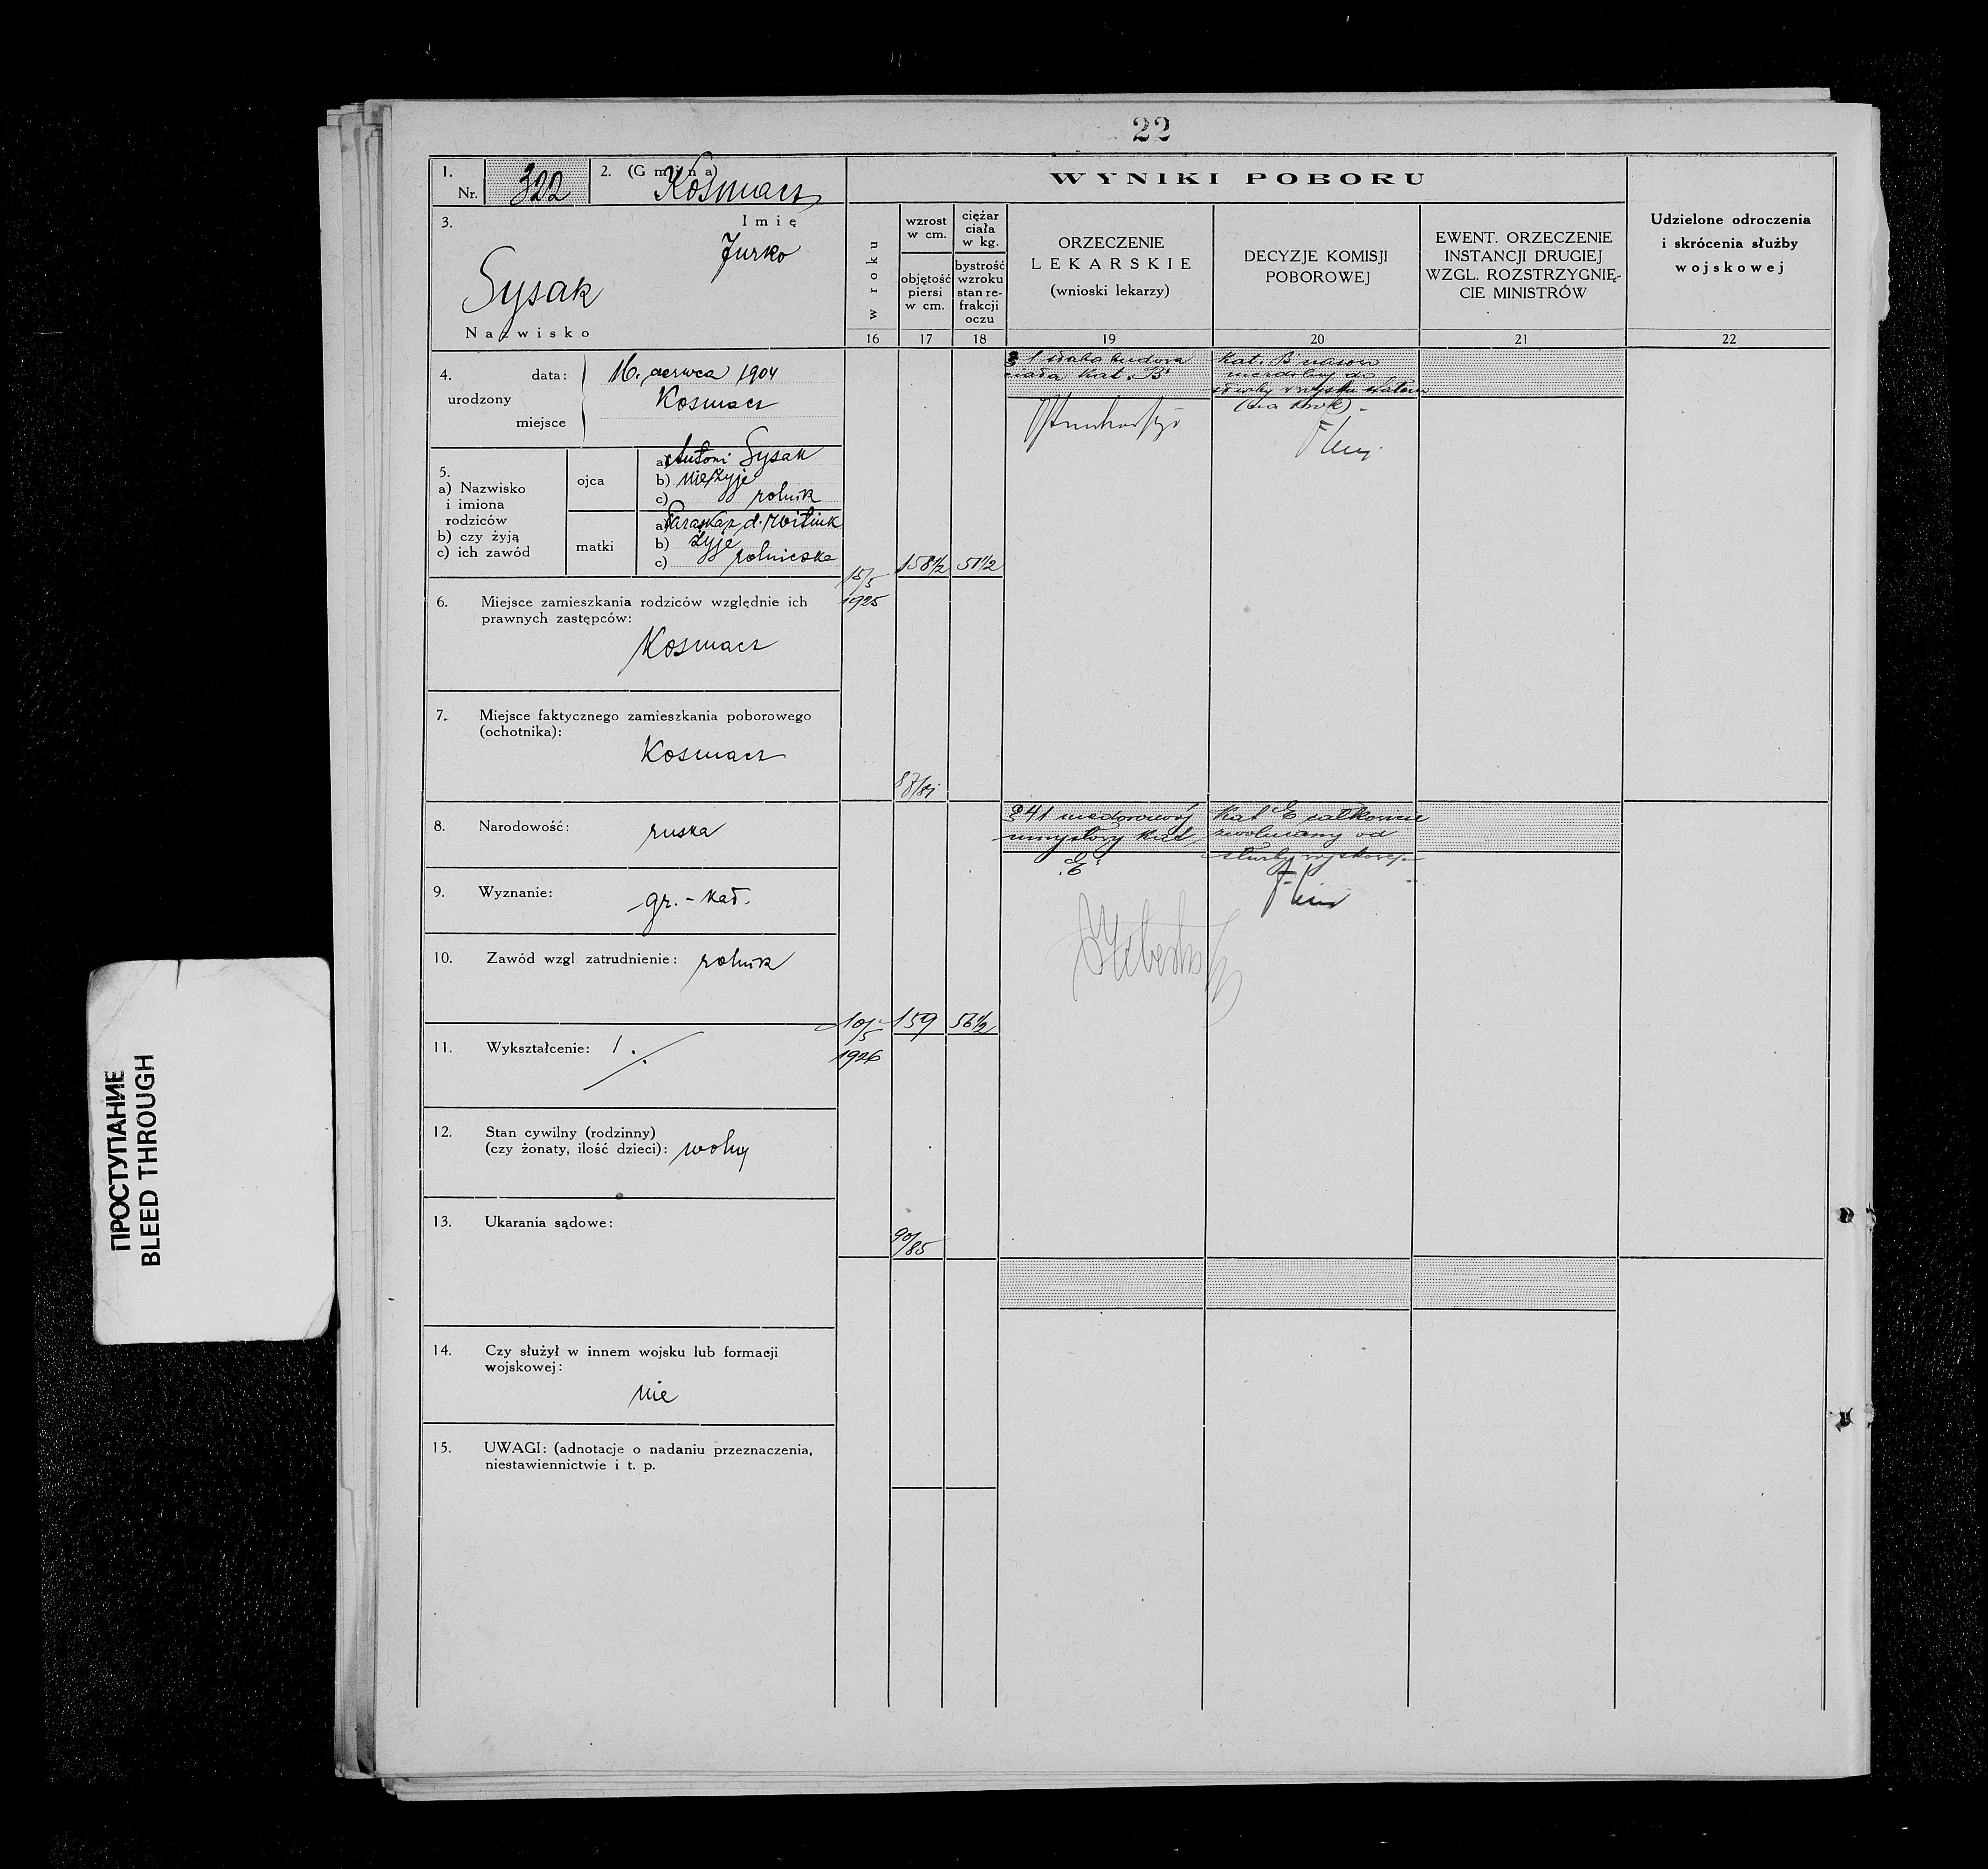 22
1.
Nr. 322
2. (Gmina) Kosmacz
3.
Imię
Jurko
Sysak
Nazwisko
4.
urodzony
data: 16. czerwca 1904
miejsce
Kosmacz
5.
a) Nazwisko
i imiona
rodziców
b) czy żyją
c) ich zawód
ojca
a) Antoni Sysak
b) nie żyje
c) rolnik
matki
a) Paraska z d.
b) żyje
c) rolniczka
6. Miejsce zamieszkania rodziców względnie ich
prawnych zastępców:
Kosmacz
7. Miejsce faktycznego zamieszkania poborowego
(ochotnika):
Kosmacz
8. Narodowość: ruska
9. Wyznanie: gr.-kat.
10. Zawód wzgl zatrudnienie: rolnik
11. Wykształcenie:
12. Stan cywilny (rodzinny)
(czy żonaty, ilość dzieci): wolny
13. Ukarania sądowe:
14. Czy służył w innem wojsku lub formacji
wojskowej:
nie
15. UWAGI: (adnotacje o nadaniu przeznaczenia,
niestawiennictwie i t. p.
WYNIKI POBORU
w roku
16
wzrost
w cm.
objętość
piersi
w cm.
17
ciężar
ciała
w kg.
bystrość
wzroku
stan re-
frakcji
oczu
18
ORZECZENIE
LEKARSKIE
(wnioski lekarzy)
19
DECYZJE KOMISJI
POBOROWEJ
20
EWENT. ORZECZENIE
INSTANCJI DRUGIEJ
WZGL. ROZSTRZYGNIĘ-
CIE MINISTRÓW
21
Udzielone odroczenia
i skrócenia służby
wojskowej
22
15/5
1925
158 1/2
51 1/2
87/81
§ 1 słaba budowa
ciała Kat. „B"
Kat. B czasowo
niezdolny do
służby
10/5
1926
159
56 1/2
90/85
§ 41 niedorozwój
umysłowy Kat.
„E"
Kat E całkowicie
zwolniony od
służby wojskowej
ПРОСТУПАНИЕ
BLEED THROUGH